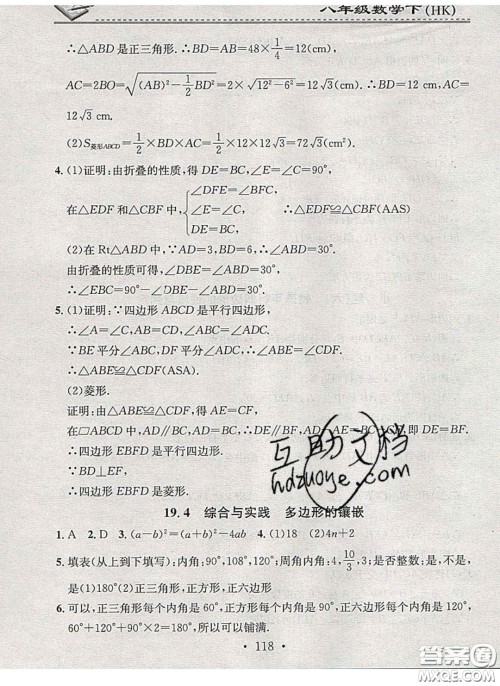 八年级数学下(HK)
∴△ABD是正三角形.∴BD=AB=48×1/4=12(cm),
AC=2BO=√((AB)²-1/2BD²)=2×√(12²-6²)=12√3(cm).∴BD=12 cm,AC=
12√3 cm.
(2)S菱形ABCD=1/2×BD×AC=1/2×12×12√3=72√3(cm²).
4.(1)证明:由折叠的性质,得DE=BC,∠E=∠C=90°,
在△EDF和△CBF中,{∠DFE=∠BFC, ∠E=∠C, DE=BC, ∴△EDF≌△CBF(AAS)
(2)在Rt△ABD中,∵AD=3,BD=6,∴∠ABD=30°.
由折叠的性质可得,∠DBE=∠ABD=30°.
∴∠EBC=90°-30°-30°=30°.
5.(1)证明:∵四边形ABCD是平行四边形,
∴∠A=∠C,AB=CD,∠ABC=∠ADC.
∵BE平分∠ABC,DF平分∠ADC,∴∠ABE=∠CDF.
∴△ABE≌△CDF(ASA).
(2)菱形.
证明:由△ABE≌△CDF,得AE=CF,
在□ABCD中,AD∥BC,AD=BC,∴DE∥BF,AD-AE=BC-CF,即DE=BF.
∴四边形EBFD是平行四边形.
∵BD⊥EF,
∴四边形EBFD是菱形.
互助文档
hdzuoye.com
19.4 综合与实践 多边形的镶嵌
1.A 2.D 3.(a-b)²=(a+b)²-4ab 4.(1)18 (2)4n+2
5.填表(从上到下填写):内角:90°,108°,120°;周角内角:4,10/3,3;是否整数:是,不是,
是(1)180°(2)正三角形,正方形,正六边形
6.可以,正三角形每个内角是60°,正方形每个内角是90°,正六边形每个内角是120°,
60°+120°+90°×2=180°,所以可以铺满.
·118·
答案圈
MXQE.COM